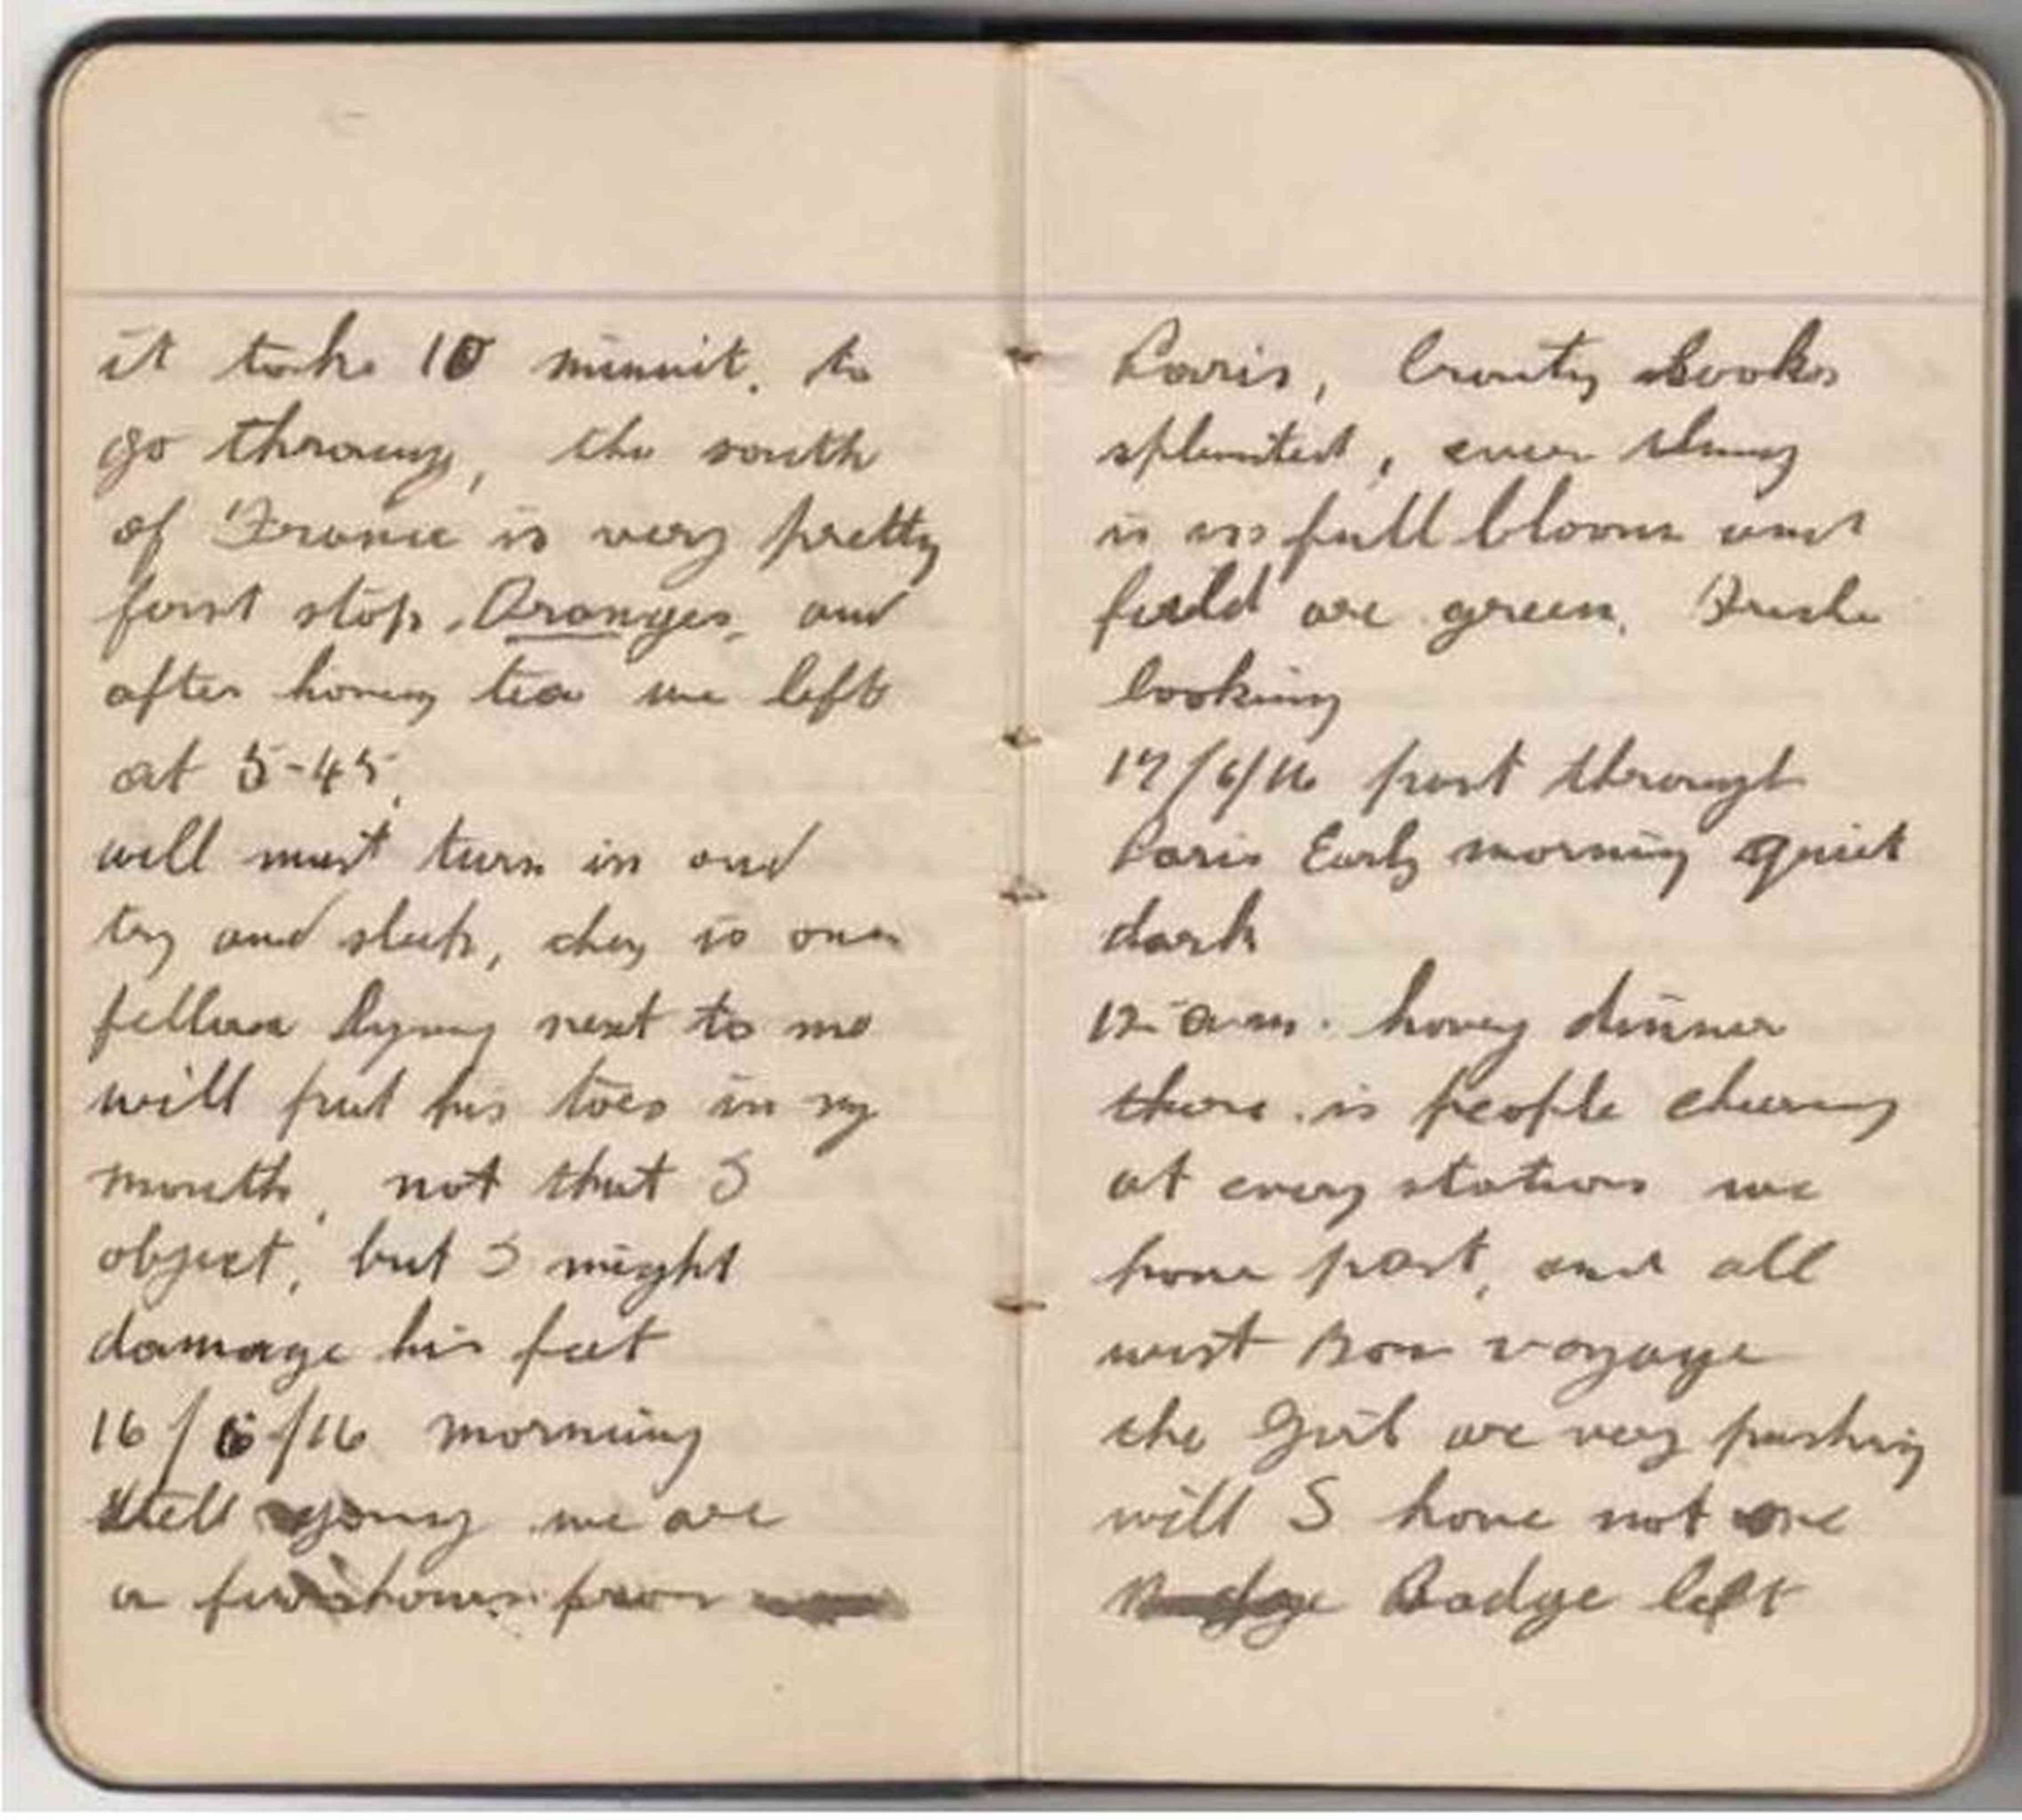 it take 10 minuit. to
go throug, the south
of France is very pretty
first stop, Oranges, and
after having tea we left
at 5-45.
will must turn in and
try and sleep, they is one
fellow lying next to me
will put his toes in my
mouth, not that I
object, but I might
damage his feet
16/6/16 morning
still going we are
a few hours from
Paris, County looks
splentied, ever thing
is in full bloom and
field are green. Freshe
looking
17/6/16 past through
Paris Early morning quiet
dark
12 a.m. having dinner
there is people cheering
at every station we
have past, and all
wist Bon voyage
the Girl are very pushing
will I have not one
Badge left